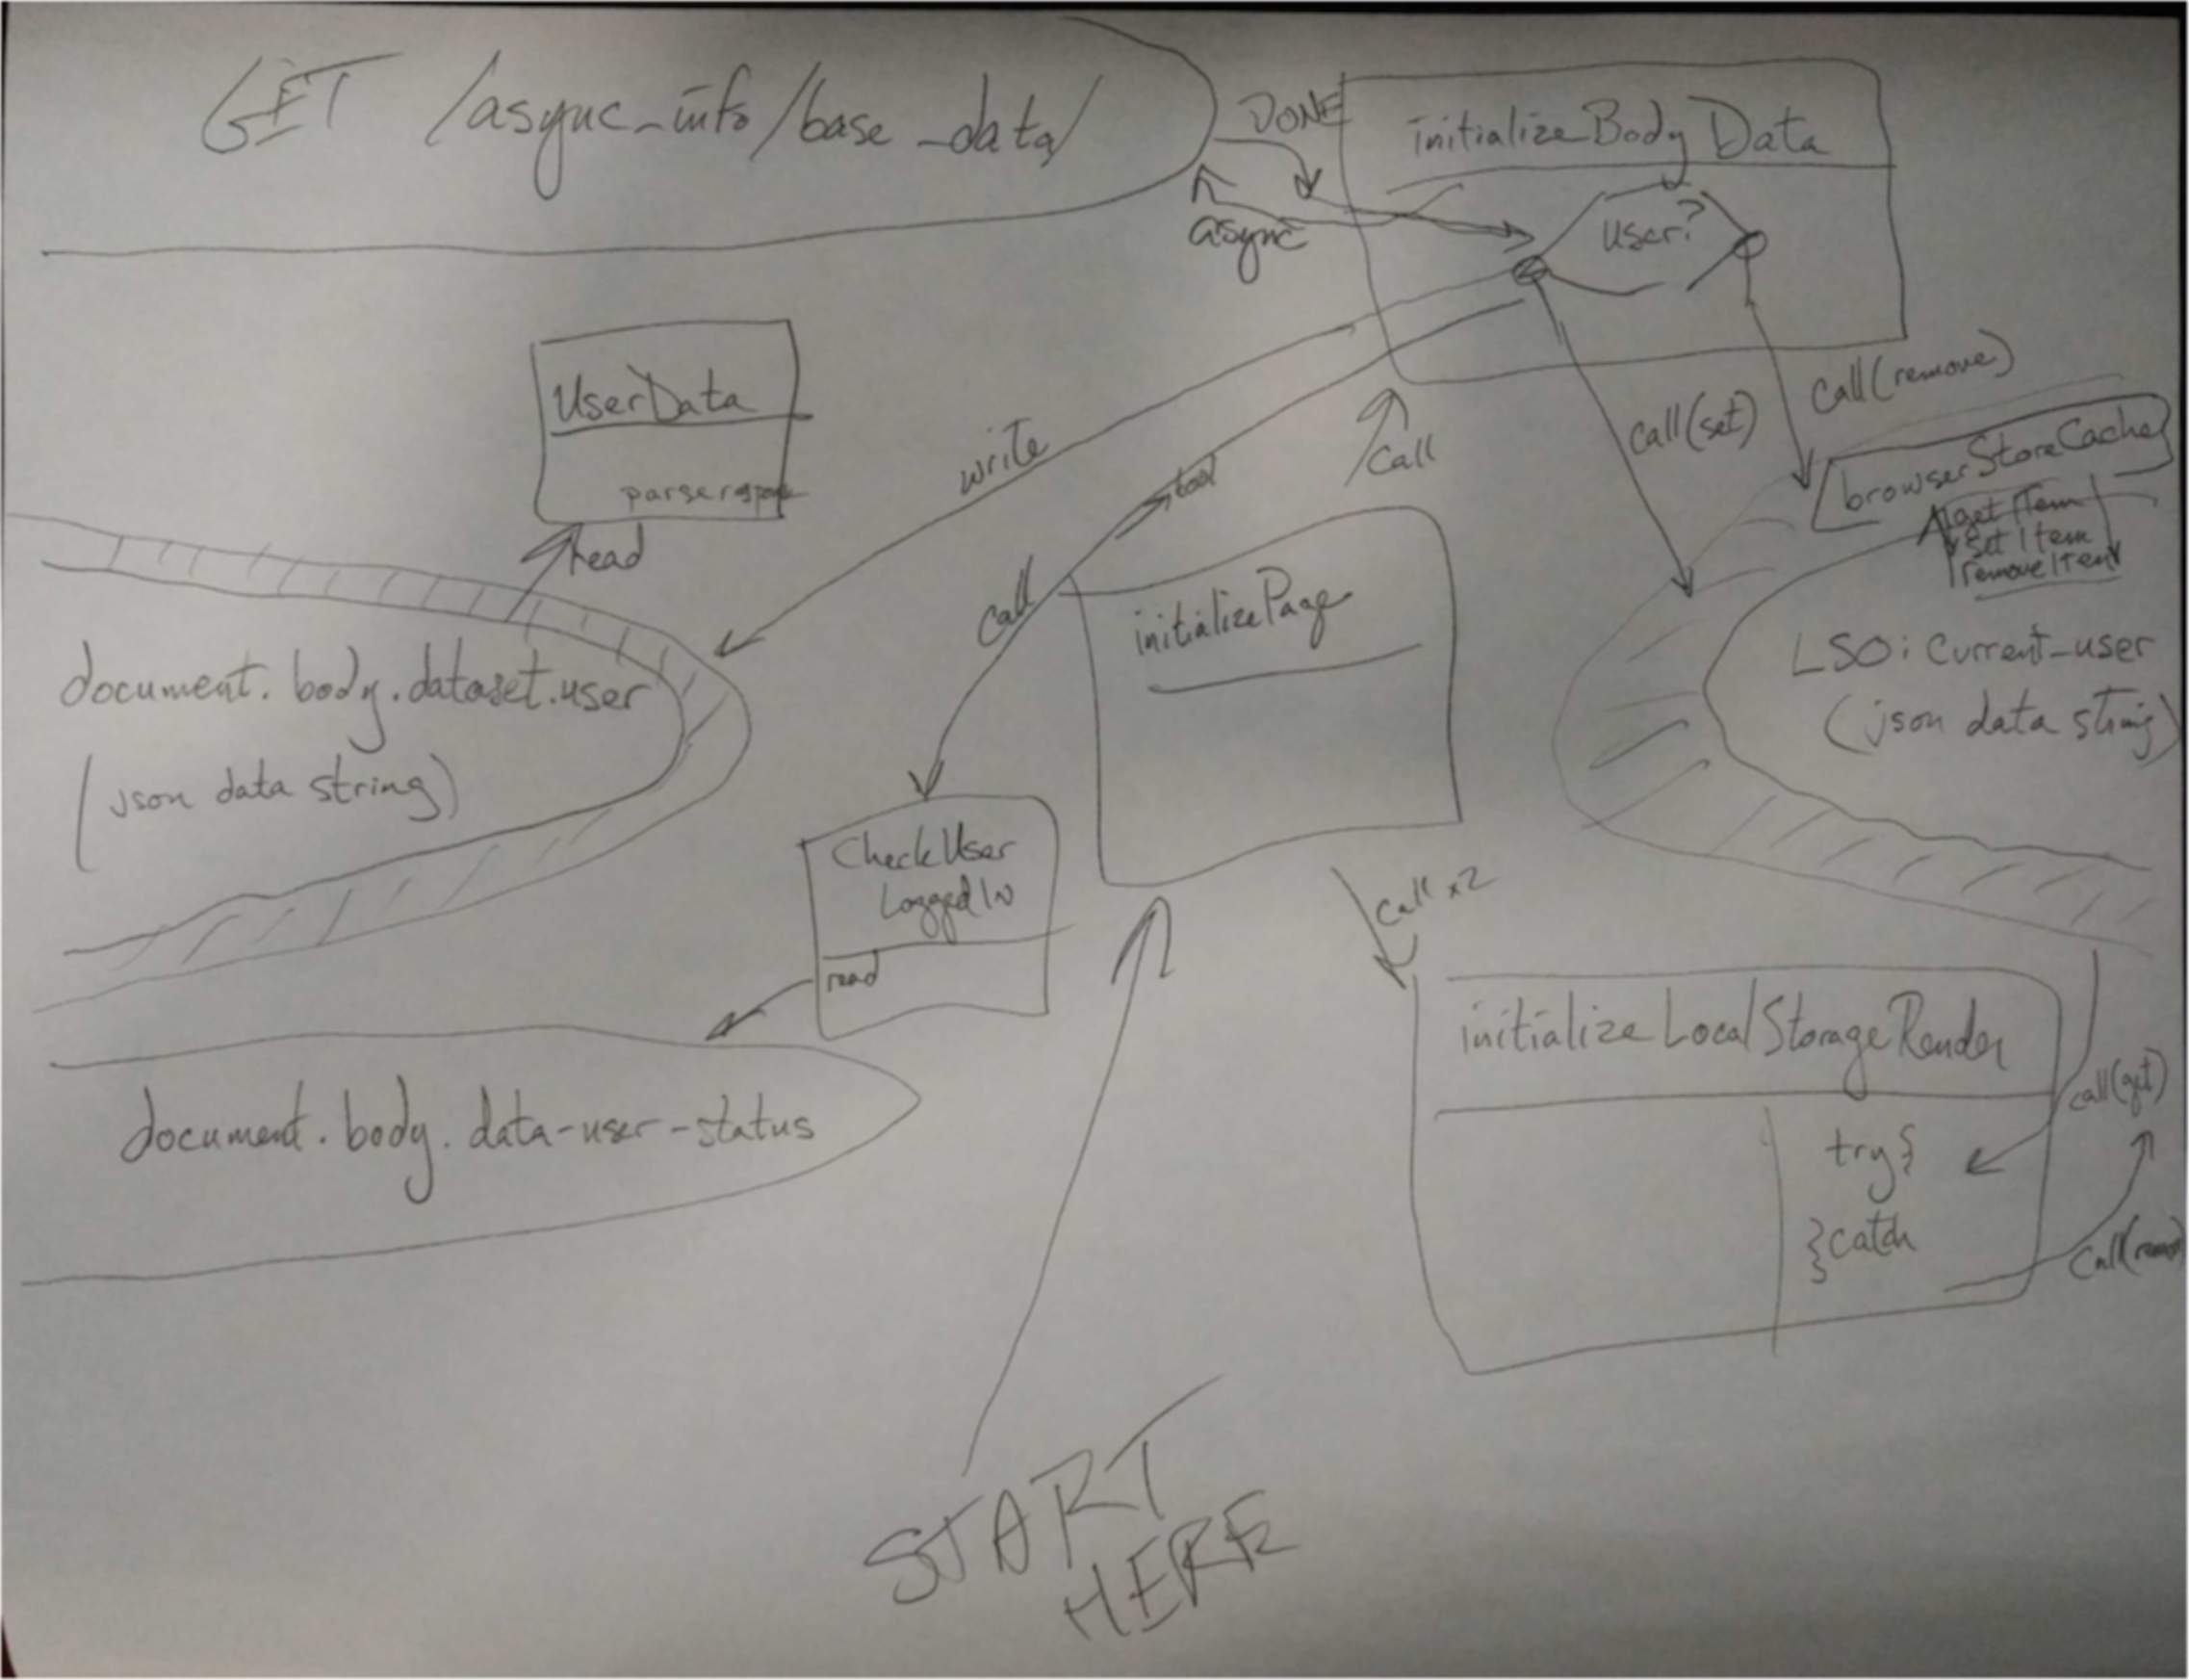 GET /async_info/base_data/
DONE
async
initializeBody Data
user?
UserData
read
write
call
bool
Call
call(set)
Call(remove)
browserStoreCache
get ITem
Set ITem
removeITem
document.body.dataset.user
(json data string)
initializePage
LSO: Current-user
(json data string)
CheckUser
LoggedIN
read
call x2
document.body.data-user-status
initializeLocalStorageRender
call(get)
try{
}catch
START
HERE